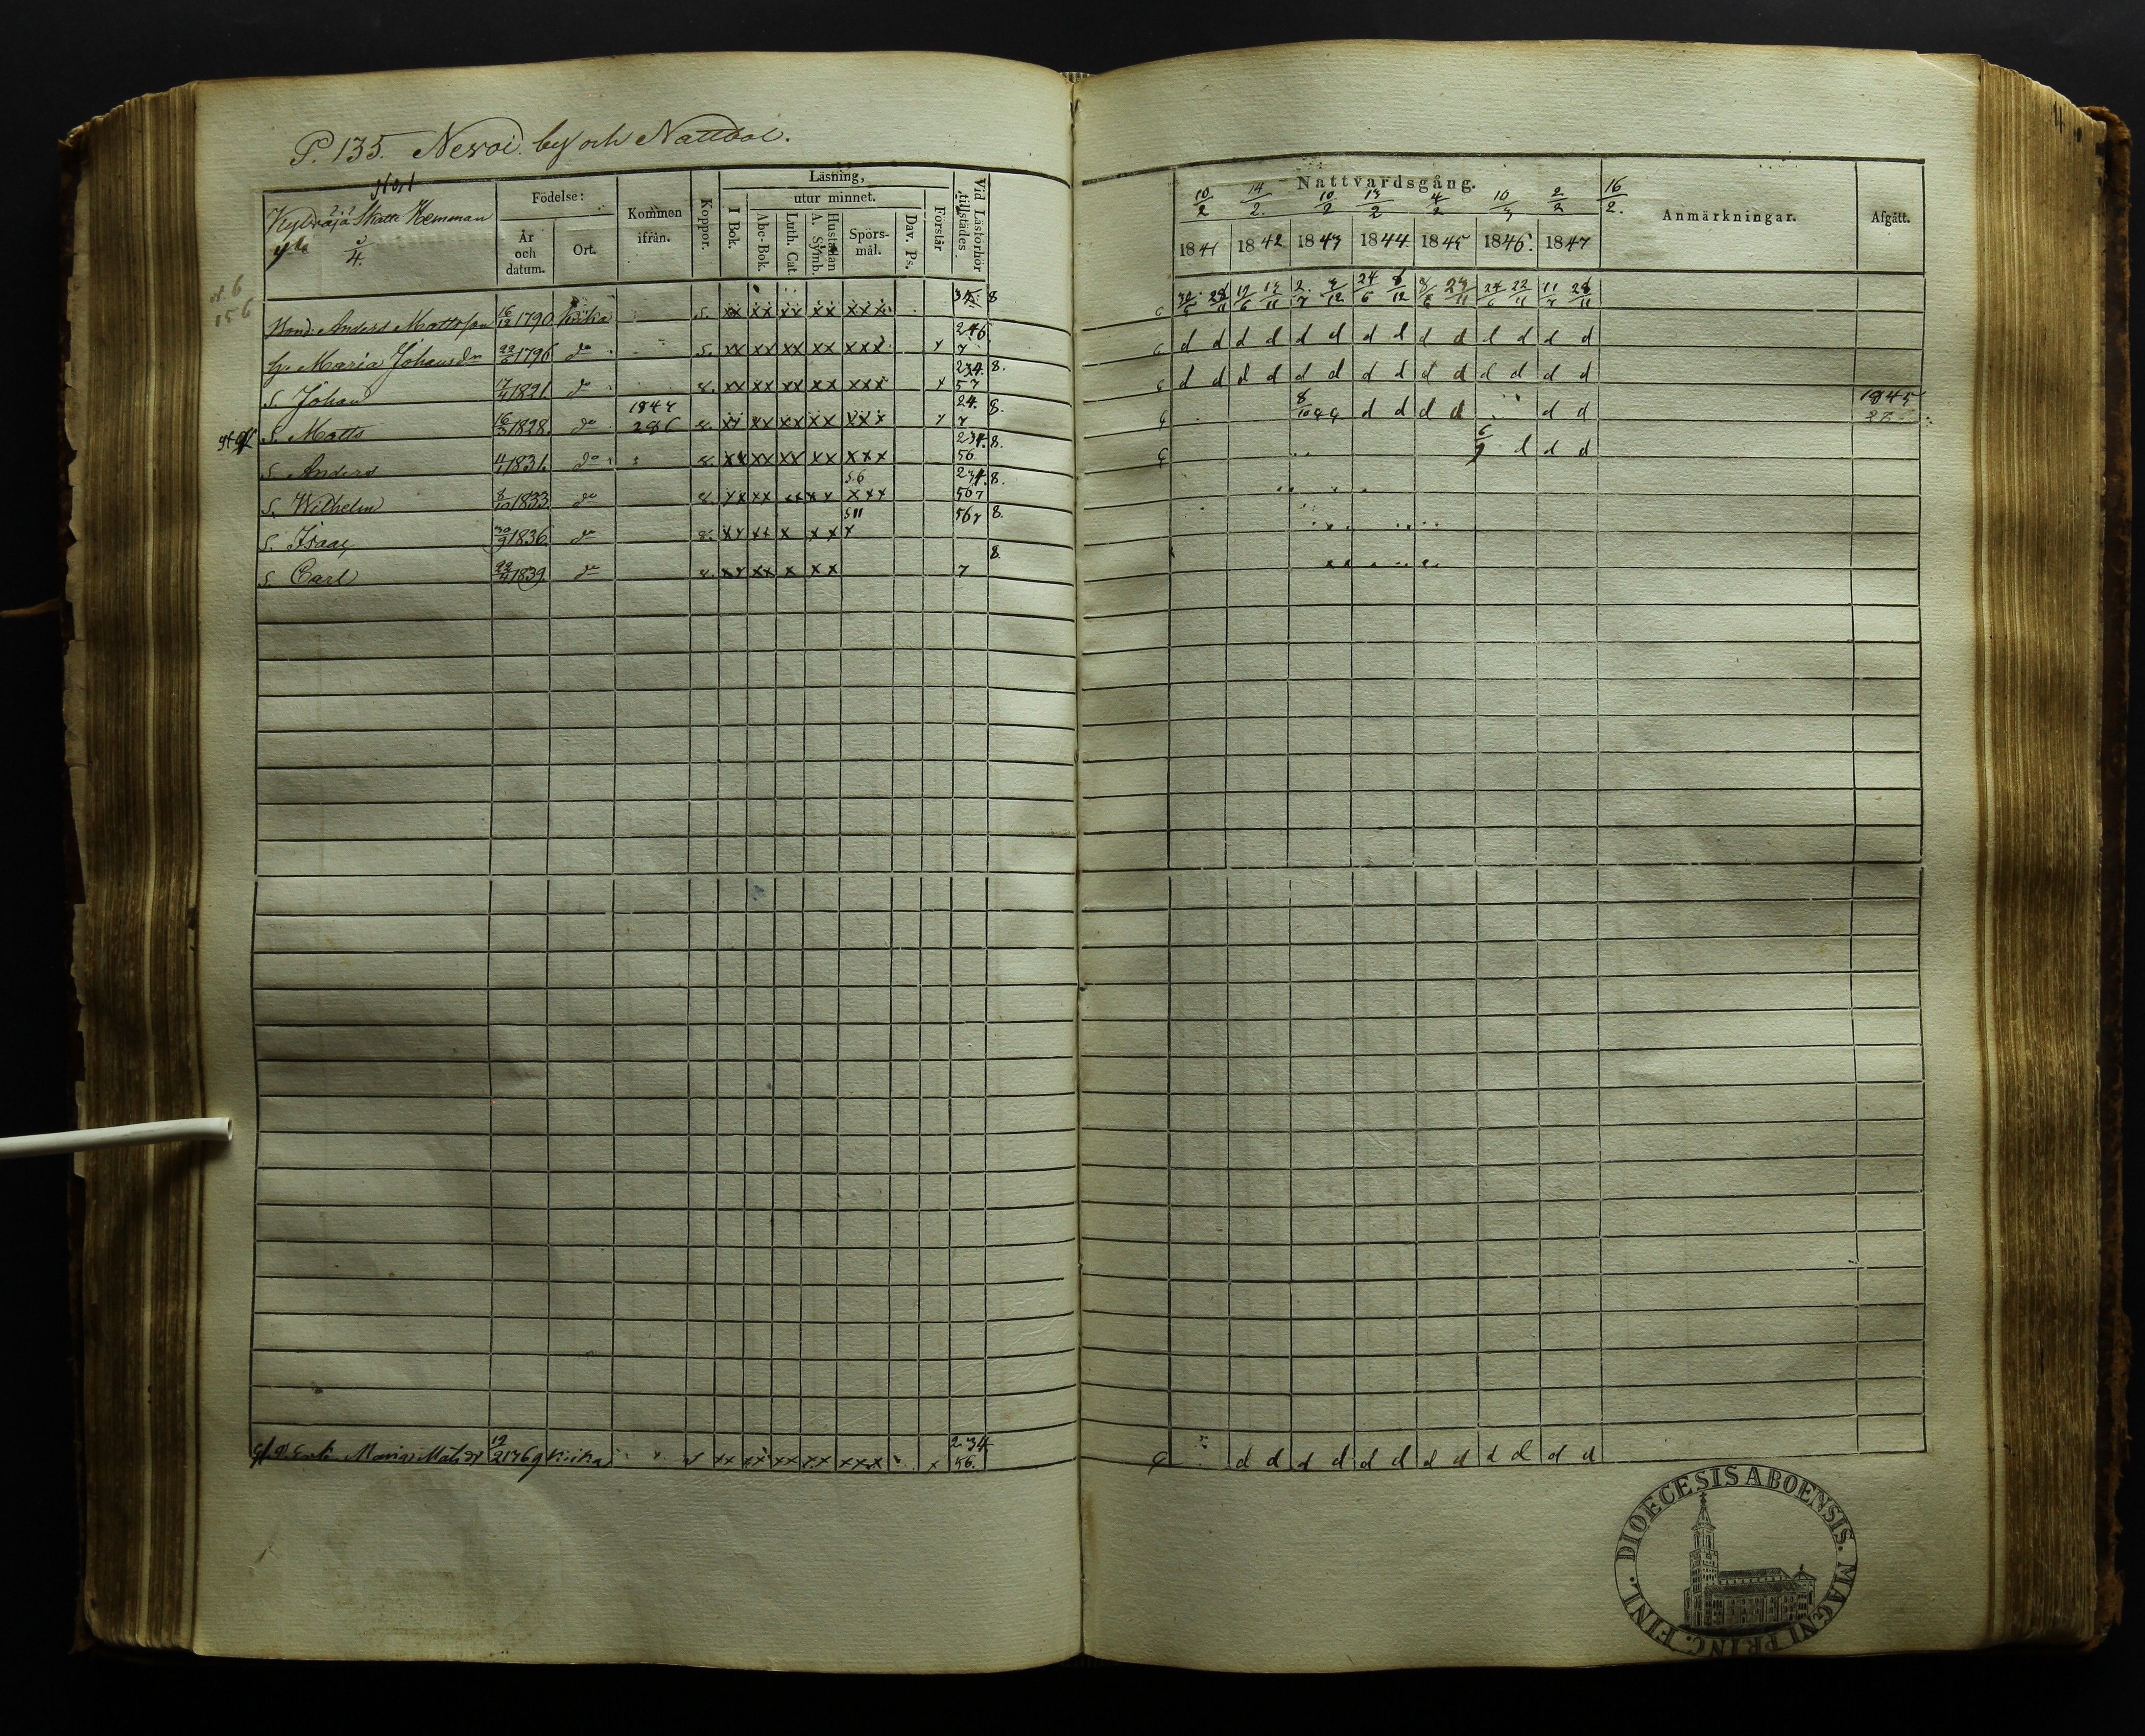 P. 135. Nervoi by och Nattbol.
No 1
Kylväjä Skatte Hemman
3/4.
Födelse:
År och datum.
Ort.
Kommen ifrån.
Koppor.
Läsning,
I Bok.
utur minnet.
Abc-Bok.
Luth. Cat.
A. Symb.
Hustaflan
Spörsmål.
Dav. Ps.
Förstår
Vid Läsförhör tillstädes.
Nattvardsgång.
10/2 14/2. 10/2 13/2 4/2 10/3 2/2 16/2.
1841 1842 1843 1844. 1845 1846. 1847
Anmärkningar.
Afgått.
Bond. Anders Mattsson 16/12 1790 Kiika s. xx xx xx xx xxx 8
12/6 2/7 24/6 8/12 8/6 24/6 22/11 11/7 28/11
h. Maria Johansdr 1796 do s. xx xx xx xx xxx x 246 7
d d d d d d d l d d l d d d
s. Johan 17/4 1821. do xx xx xx xx xxx x 234. 57 8.
d d d d d d d d d d d d d d
s. Matts 16/3 1828. do 1847 286 xx xx xx xx xxx x 24. 7 8.
8/10 d d d d d d 1845
s. Anders 4/1 1831. do xx xx xx xx xxx 234. 56 8.
6/9 l d d
s. Wilhelm 8/10 1833. do xx xx xx xx xxx 56 234. 567 8.
s. Isaac 30/9 1836. do xx xx x xx x 511 567 8.
s. Carl 22/4 1839. do xx xx x xx 7 8.
Enk. Maria Matsdr 19/2 1769 Kiika xx xx xx xx xxx x 234 56.
d d d d d d d d d d d d
DIOECESIS ABOENSIS. MAGNI PRINC. FINL.